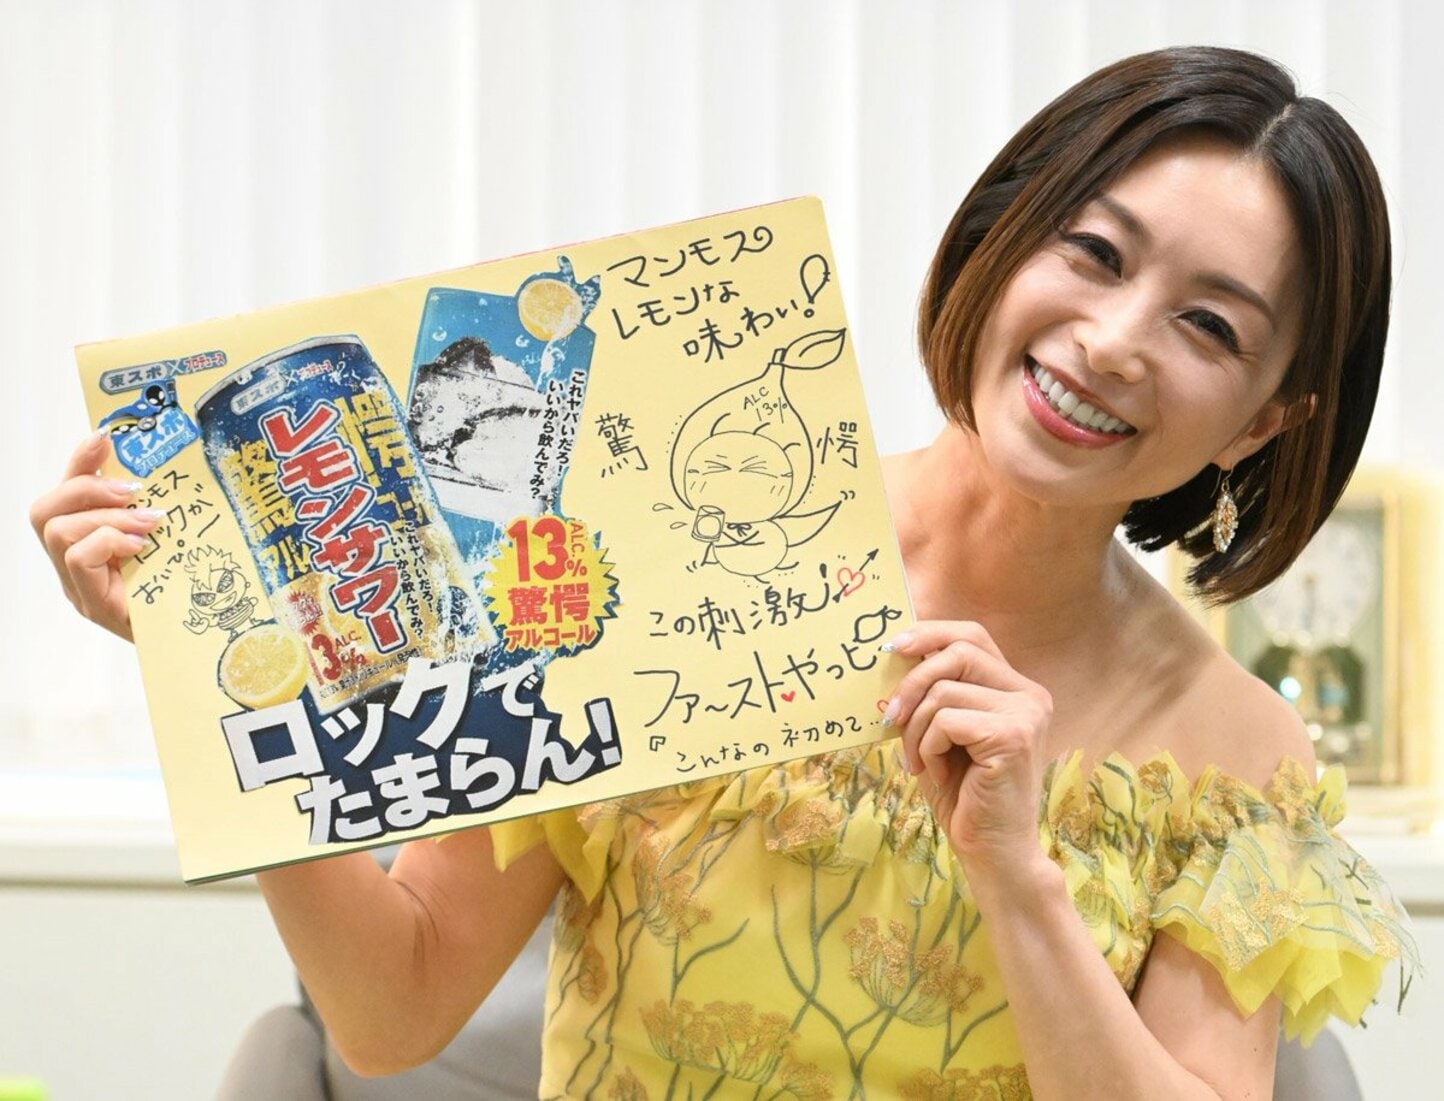 東スポ×プロデュース
東スポ
プロデュース
東スポ×プロデュース
驚愕
アルコール
レモンサワー
これヤバいだろ!
いいから飲んでみ?
13%
ALC.
これヤバいだろ!
いいから飲んでみ?
13%
ALC.
驚愕
アルコール
ロックで
たまらん!
マンモス
ロックが
おいぴー
マンモス
レモンな
味わい!
ALC
13%
驚
愕
この刺激!
ファ〜スト・やっピー
『こんなの初めて…